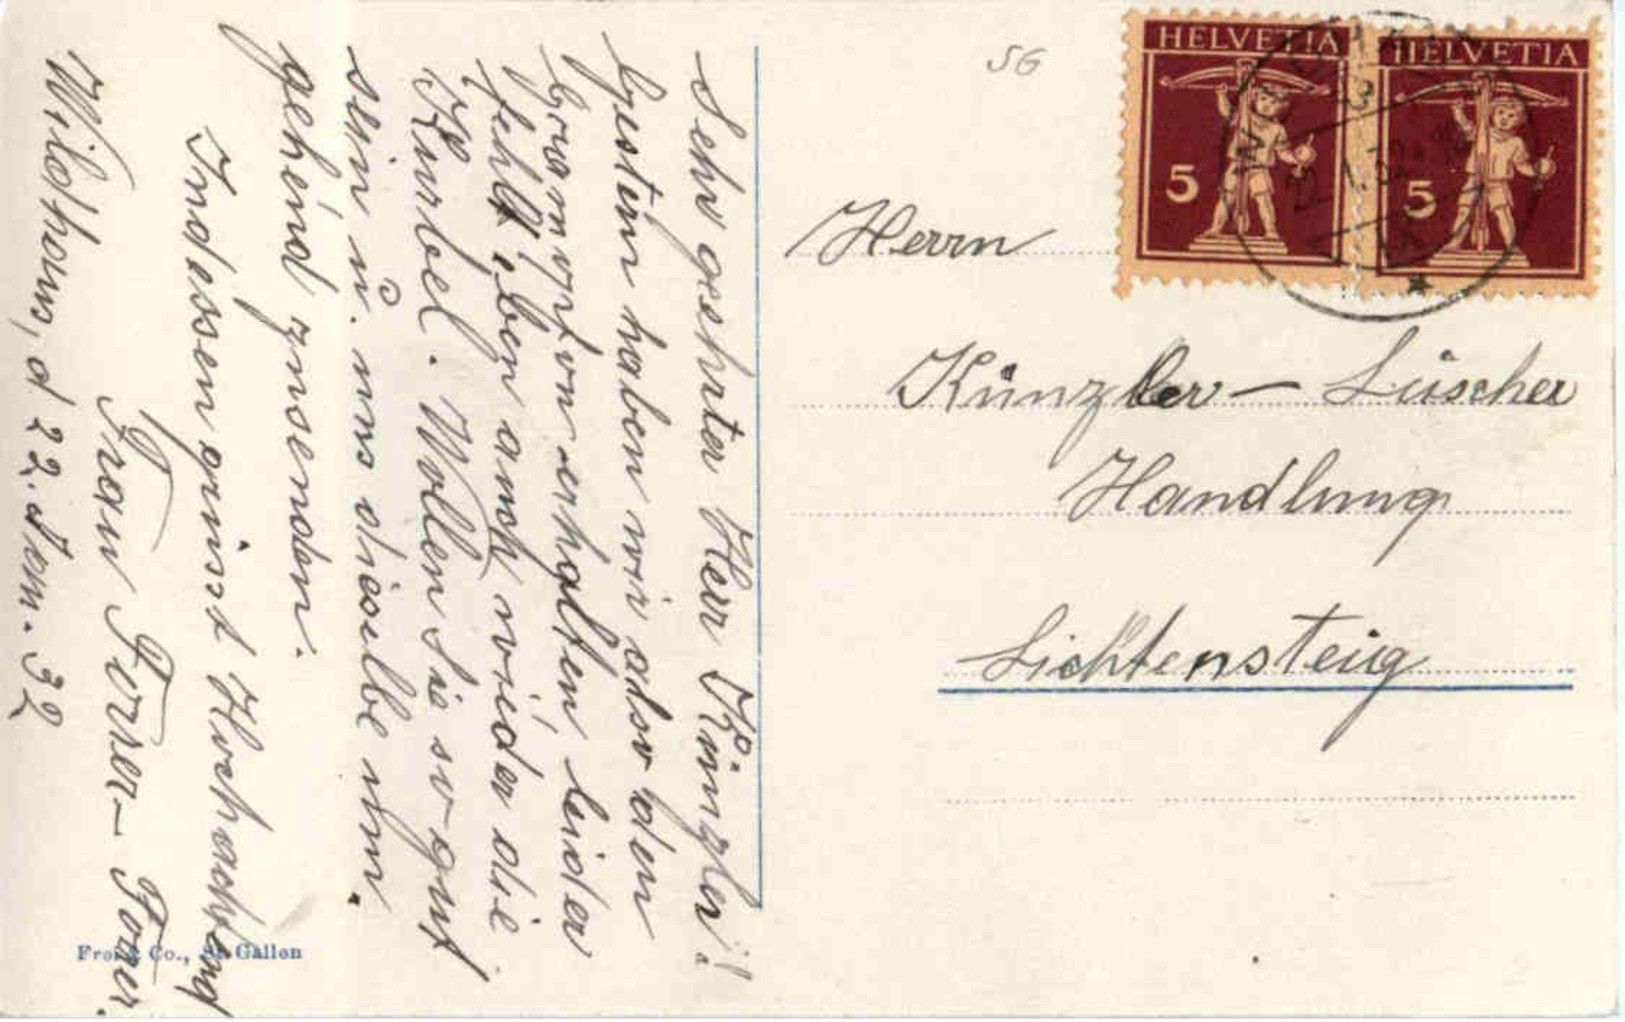 Sehr geehrter Herr Künzler!
Gestern haben wir also den
Grammofon erhalten, leider
fehlt eben auch wieder die
Kurbel. Wollen Sie so gut
sein u. uns dieselbe um
gehend zusenden.
Indessen grüsst Hochachtung
Frau Forrer-Forrer.
Wildhaus, d 22. Jan. 32
Fro & Co., St. Gallen
SG
HELVETIA
5
HELVETIA
5
Herrn
Künzler - Lüscher
Handlung
Lichtensteig